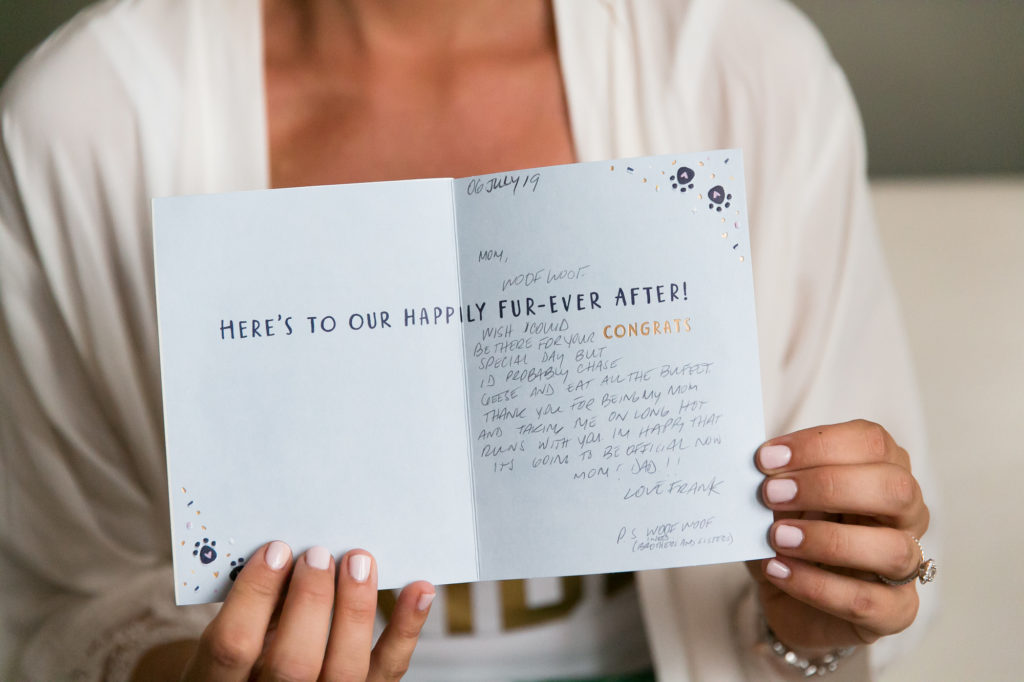 06 JULY 19
MOM,
WOOF WOOF.
HERE'S TO OUR HAPPILY FUR-EVER AFTER!
CONGRATS
WISH I COULD
BE THERE FOR YOUR
SPECIAL DAY BUT
I'D PROBABLY CHASE
GEESE AND EAT ALL THE BUFFET.
THANK YOU FOR BEING MY MOM
AND TAKING ME ON LONG HOT
RUNS WITH YOU. I'M HAPPY THAT
ITS GOING TO BE OFFICIAL NOW
MOM & DAD!!
LOVE FRANK
P.S. WOOF WOOF
(NEED
BROTHERS AND SISTERS)